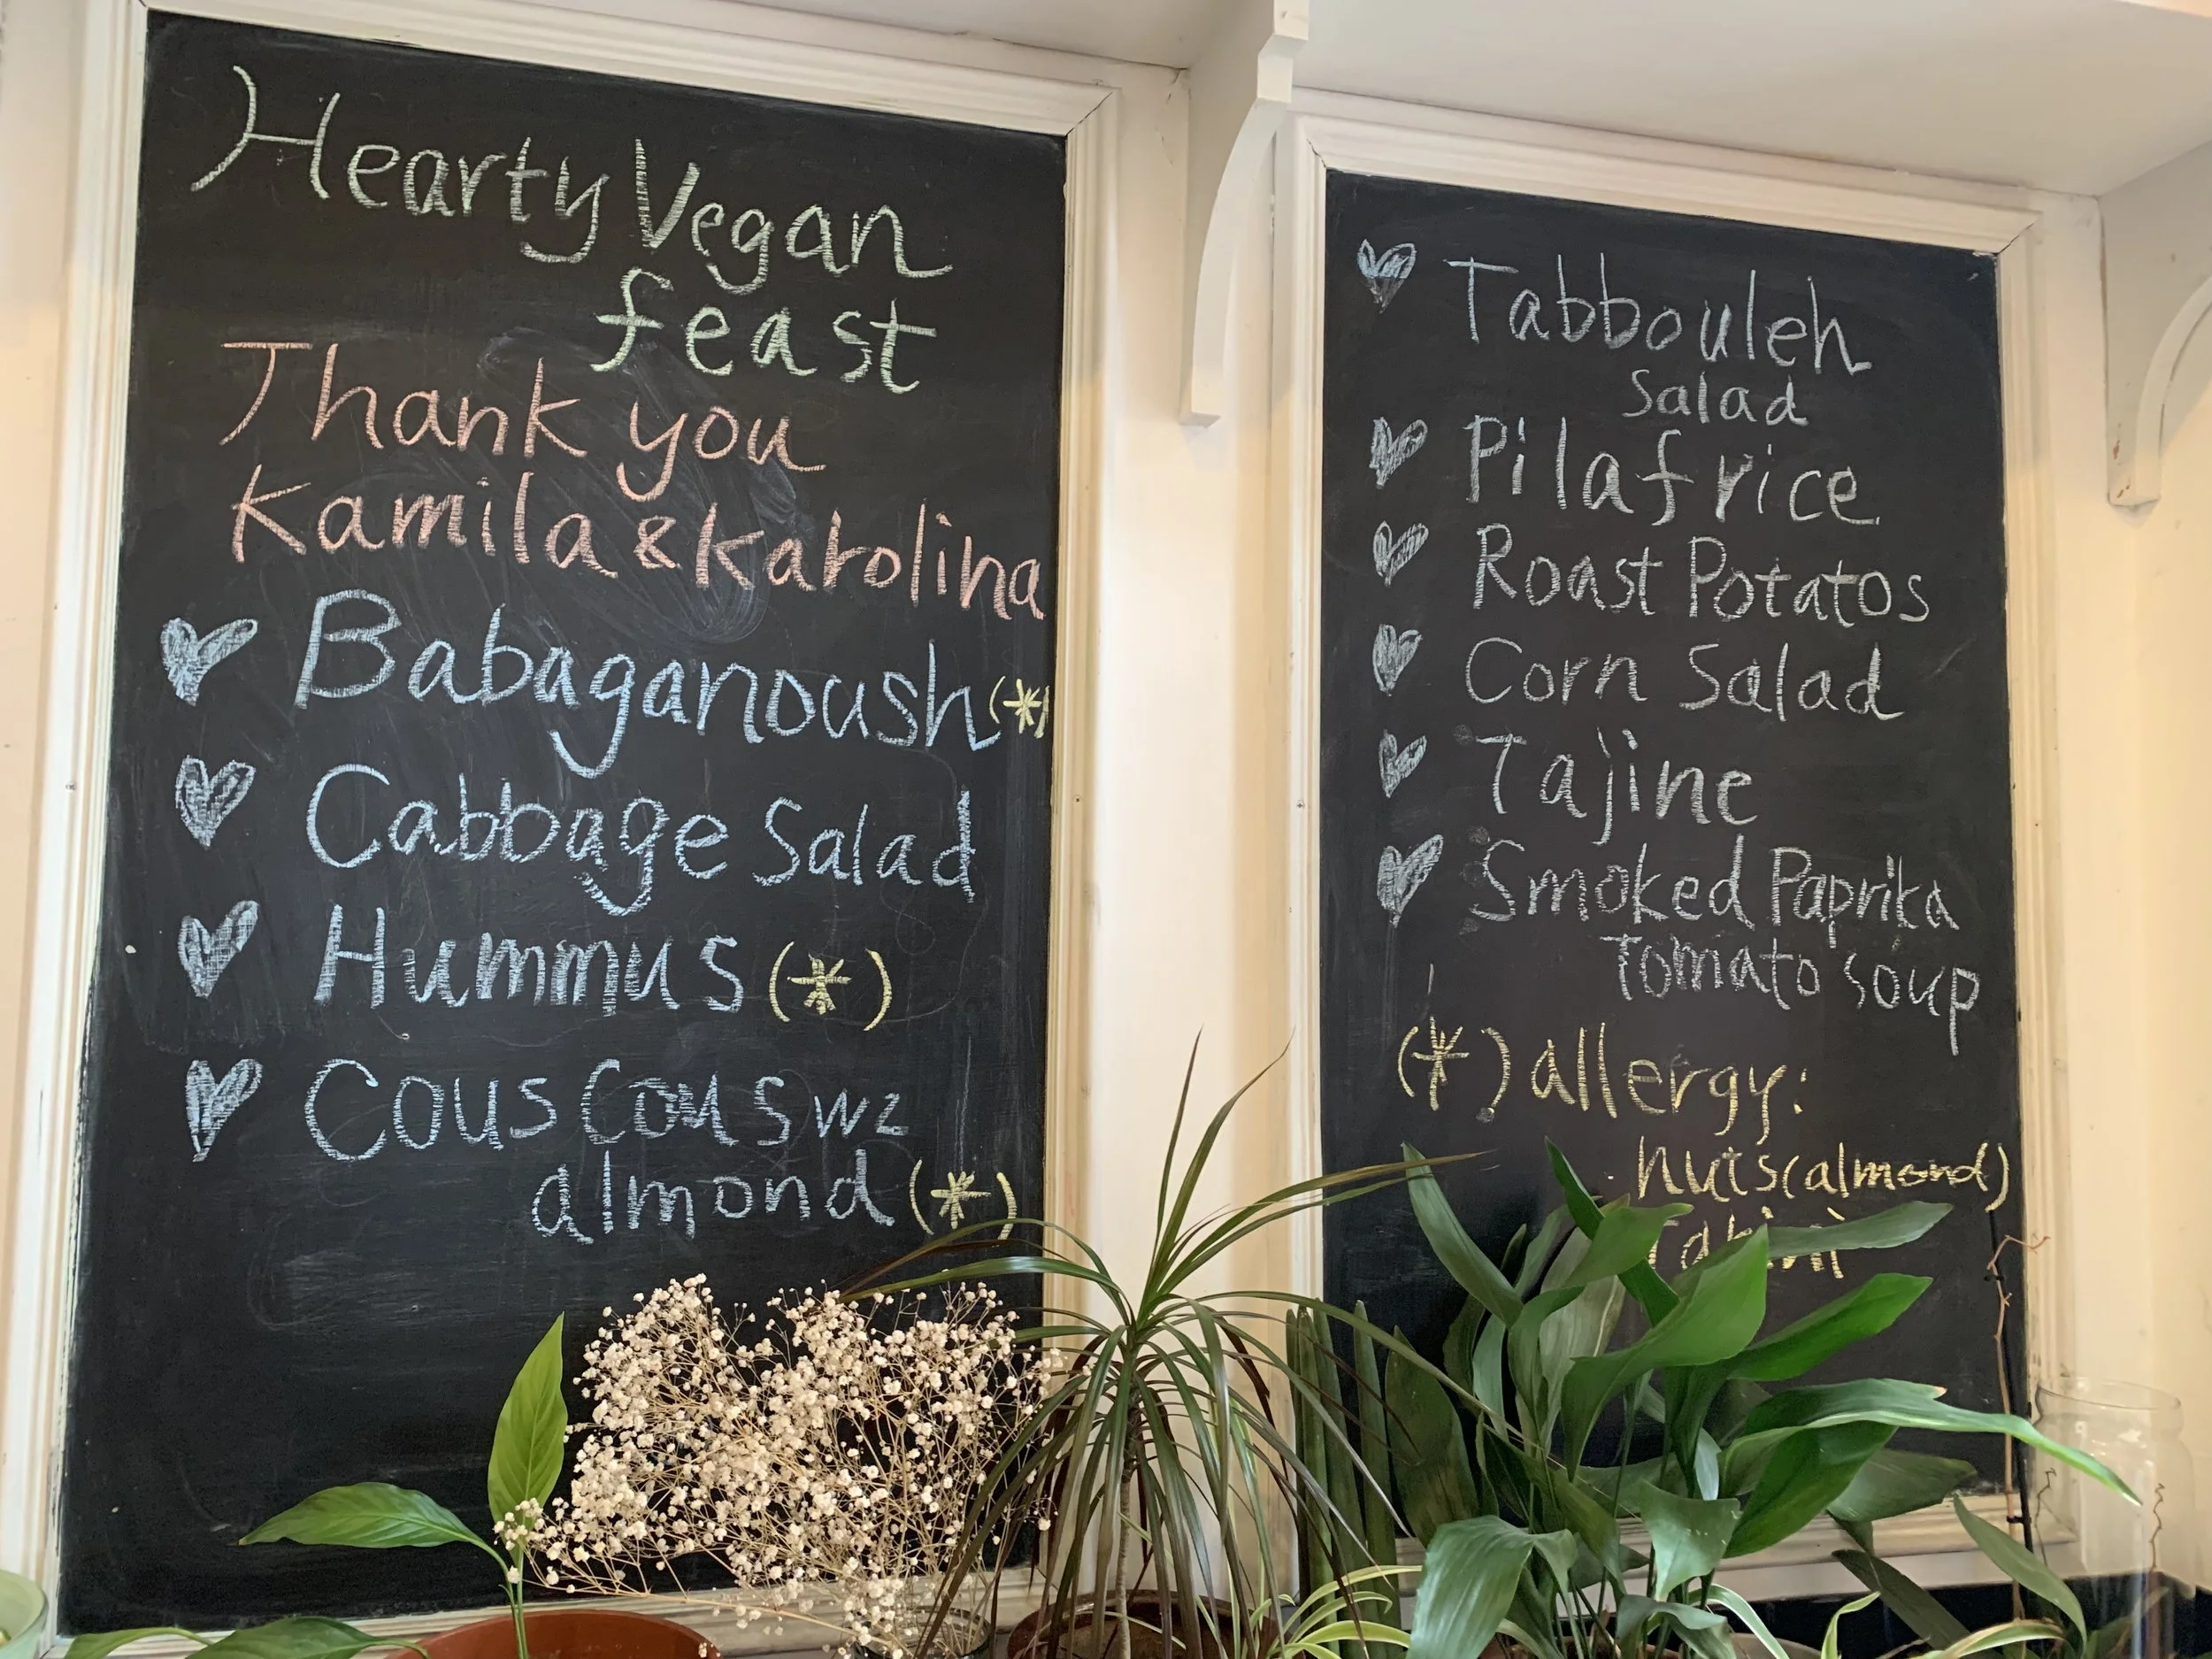 Hearty Vegan
feast
Thank you
Kamila & Karolina
Babaganoush (*)
Cabbage Salad
Hummus (*)
Couscous wz
almond (*)
Tabbouleh
Salad
Pilaf rice
Roast Potatos
Corn Salad
Tajine
Smoked Paprika
Tomato soup
(*) allergy:
. Nuts (almond)
Tahini